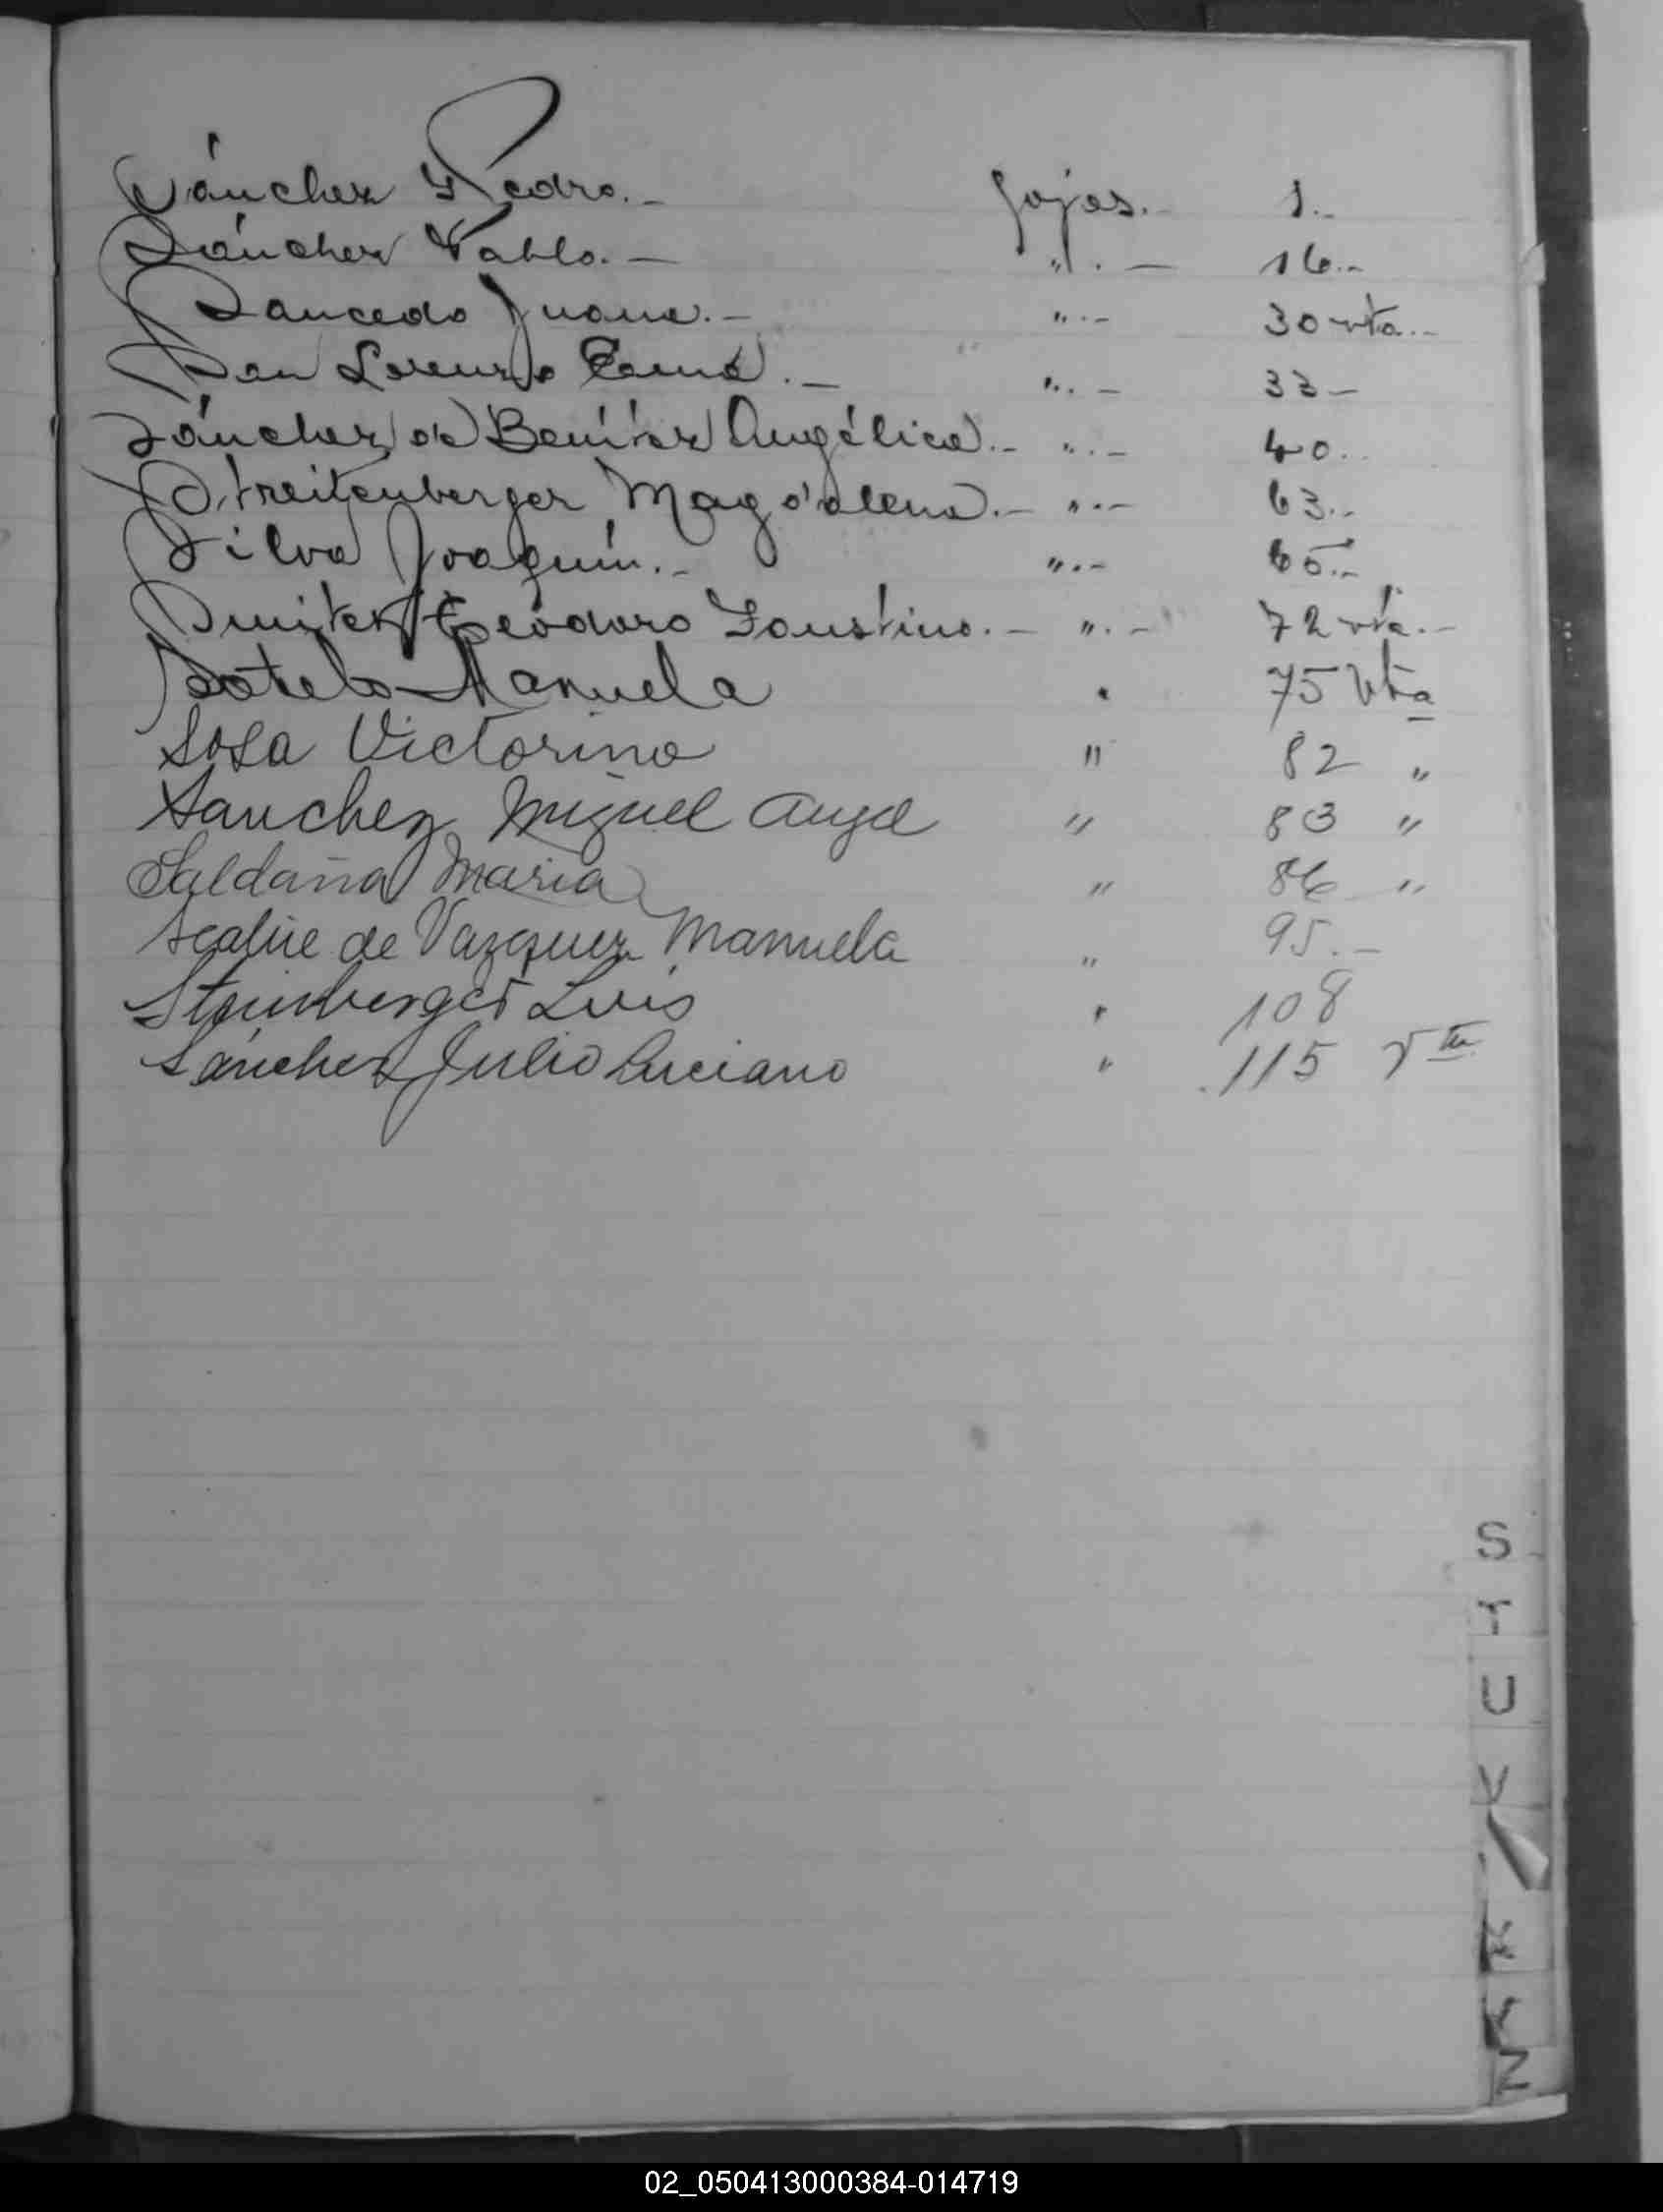 Sánchez Pedro.- fojas.- 1.-
Sánchez Pablo.- ".- 16.-
Saucedo Juana.- ".- 30 vta.-
San Lorenzo ".- 33-
Sánchez de Benítez Angélica.- ".- 40.
Streitenberger Magdalena.- ".- 63.-
Silva Joaquín.- ".- 65.-
Teodoro Faustino.- ".- 72 vta.-
Sotelo Manuela " 75 Vta
Sosa Victorino " 82 "
Sanchez Miguel Angel " 83 "
Saldaña Maria " 86 "
de Vazquez Manuela " 95.-
Steimberger Luis " 108
Sánchez Julio Luciano " 115 Vta
S
T
U
V
Z
02_050413000384-014719